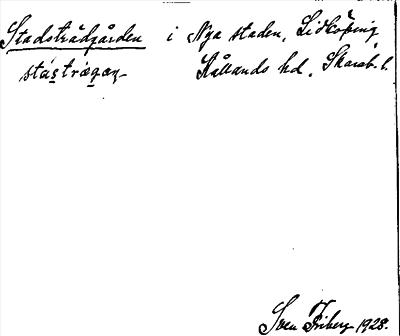 Stadsträdgården i Nya staden, Lidköping,
Kållands hd. Skarab. l.
Sven Friberg 1928.